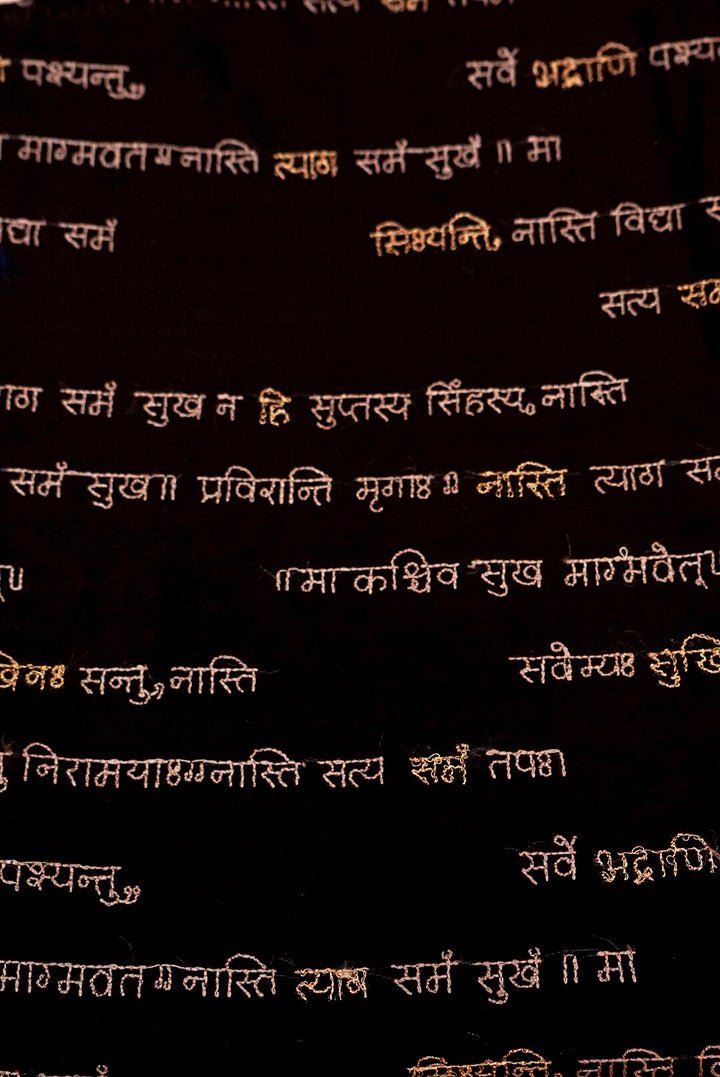 नास्ति सत्य समं तपः
पश्यन्तु,, सर्वे भद्राणि
मागमवत॥नास्ति त्याग समं सुखं ॥ मा
समं सिध्यन्ति, नास्ति विद्या
सत्य
समं सुख न हि सुप्तस्य सिंहस्य,नास्ति
समं सुख॥ प्रविशन्ति मृगाः॥ नास्ति त्याग
॥मा कश्चिव सुख मागमवेत्॥
सन्तु,,नास्ति सर्वेम्यः
निरामयाः॥नास्ति सत्य समं तपः।
पश्यन्तु,, सर्वे भद्राणि
मागमवत॥नास्ति त्याग समं सुखं ॥ मा